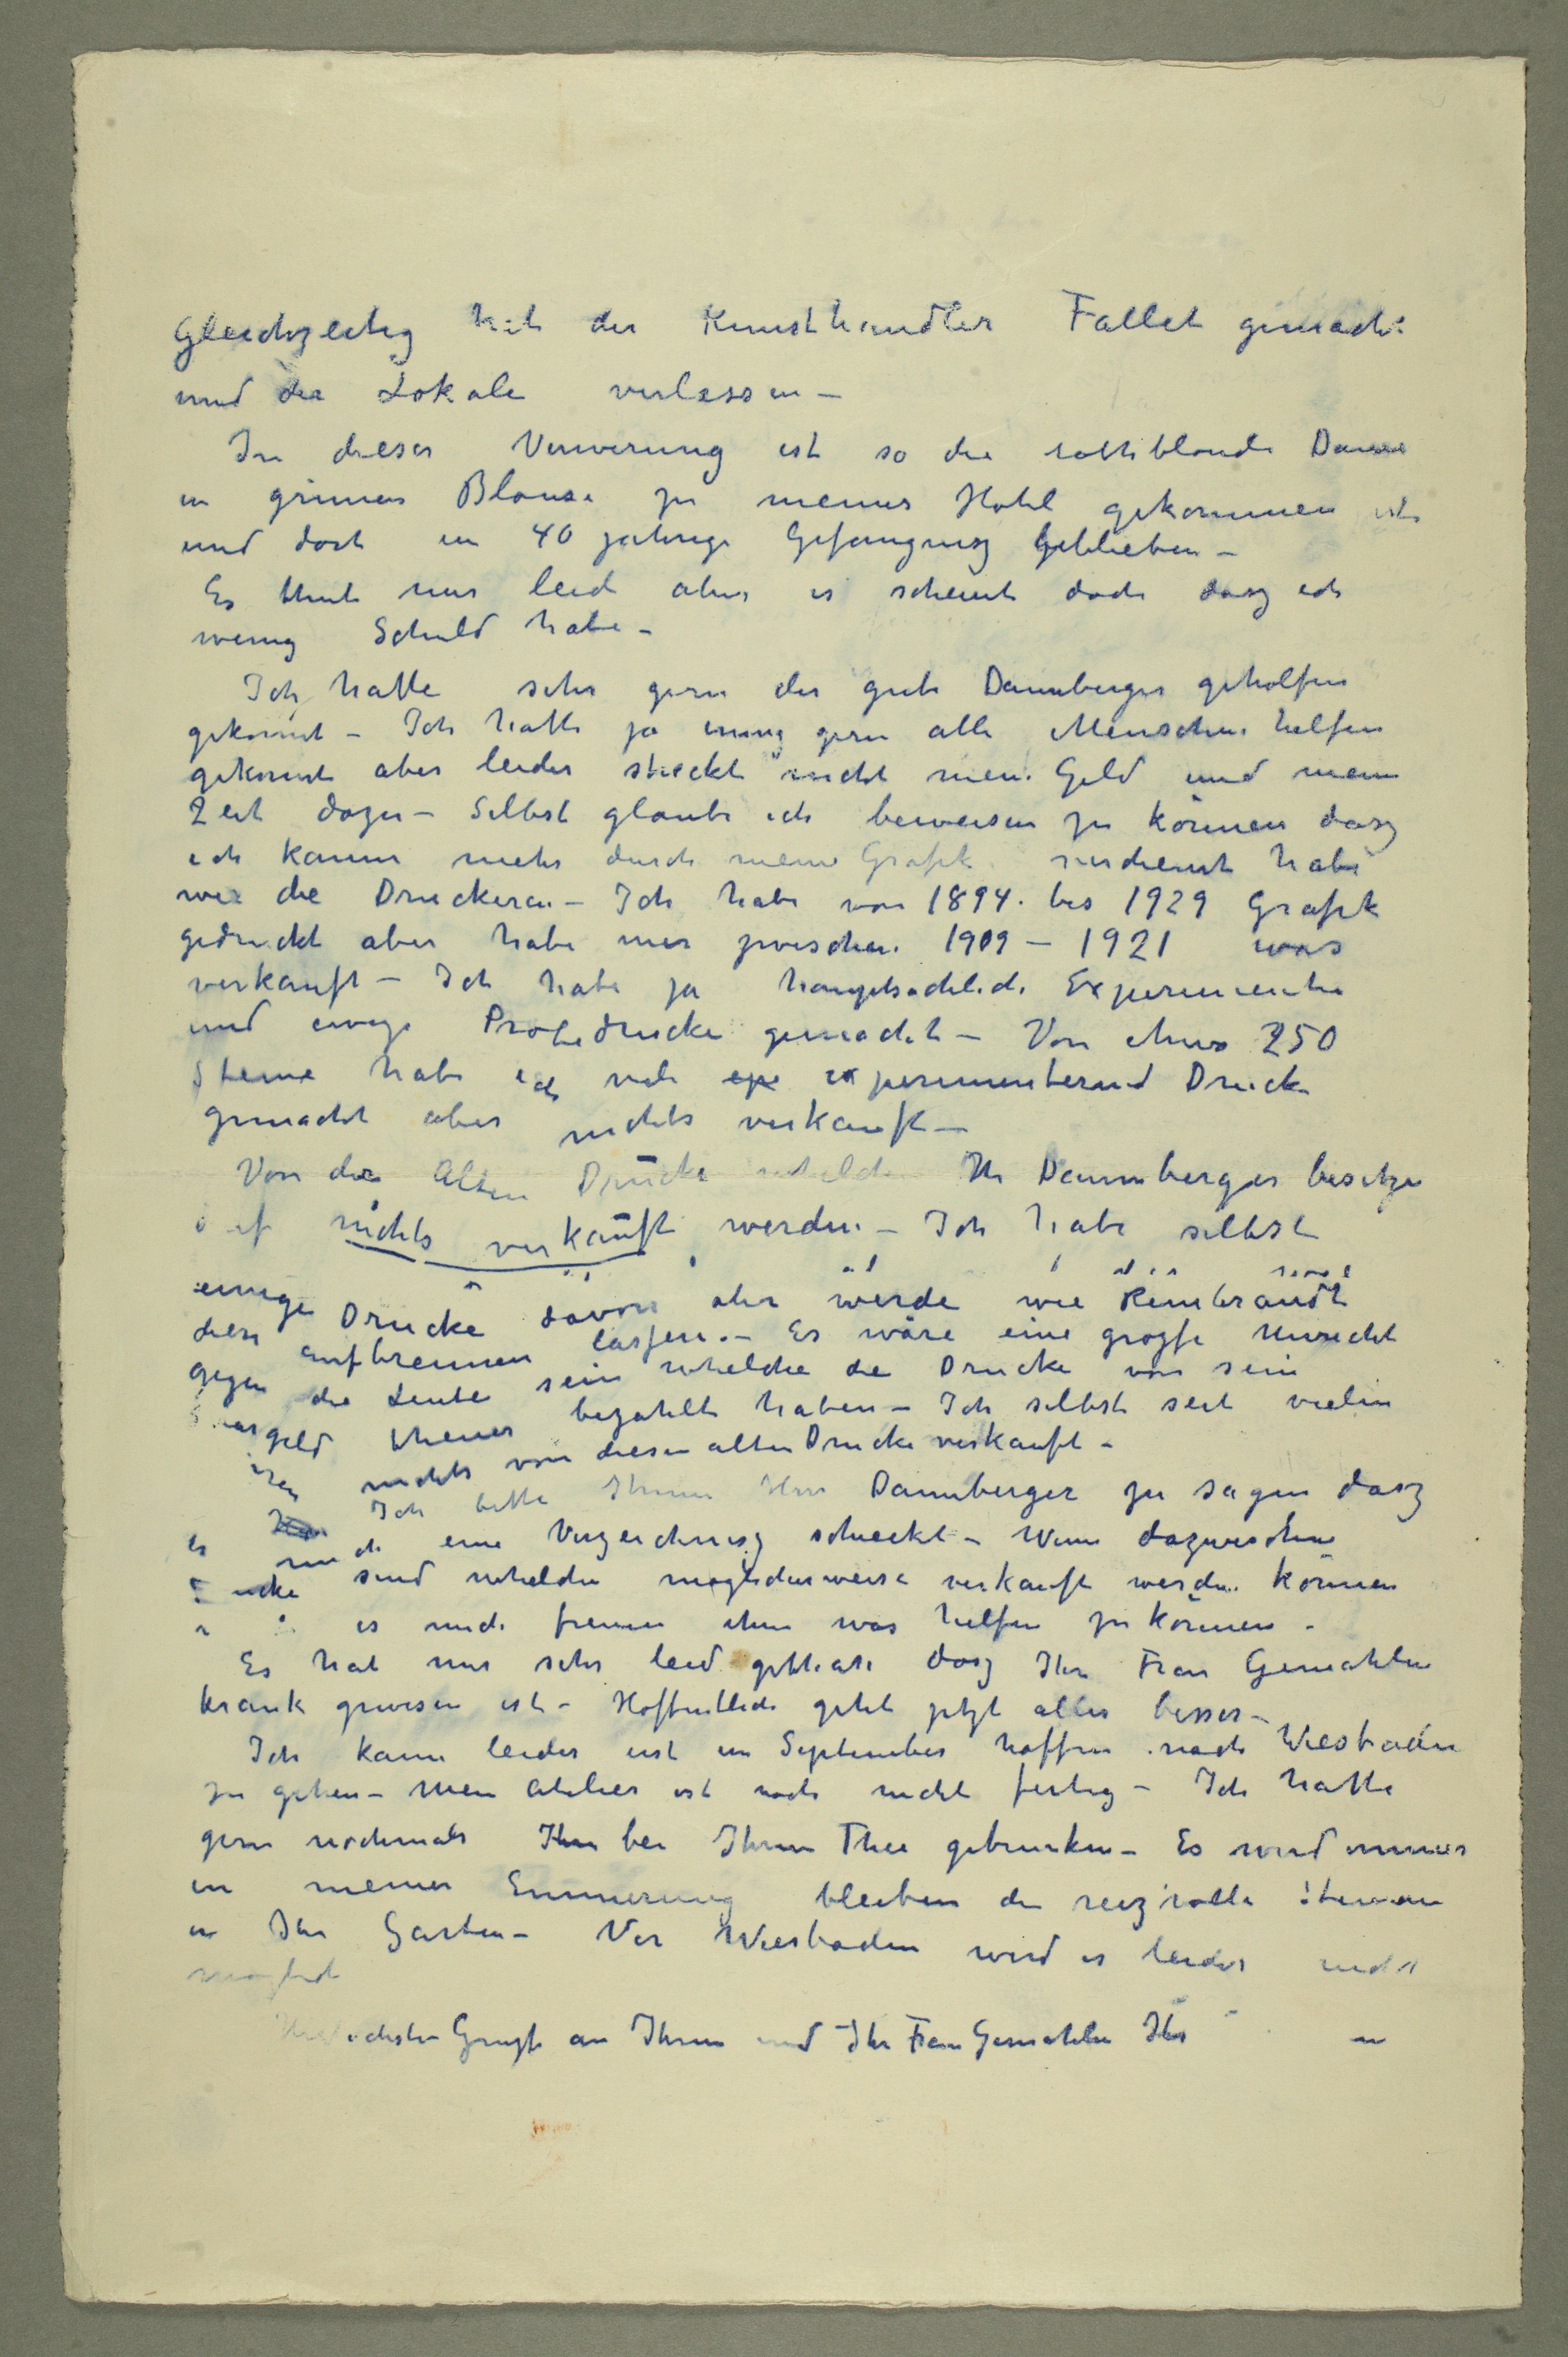 Gleichzeitig hat der Kunsthandler Fallet gemacht
und der Lokale verlassen –
In dieser Verwirrung ist so die rothblonde Dame
in grünen Blouse zu meiner Hotel gekommen
und dort in 40 jahrige Gefangnisz geblieben –
Es thut mir leid aber es scheint doch dasz ich
wenig Schuld habe –
Ich hatte sehr gern der gute Dannberger geholfen
gekonnt – Ich hatte ja gern alle Menschen helfen
gekonnt aber leider streckt nicht mein Geld und mein
Zeit dazu – Selbst glaube ich beweisen zu können dasz
ich kaum mehr durch meine Grafik verdient habe
wie die Druckeren – Ich habe von 1894 bis 1929 Grafik
gedruckt aber habe nur zwischen 1909 – 1921 was
verkauft – Ich habe ja hauptsachlich Experimente
und einige Probedrucke gemacht – Von etwa 250
Steine habe ich viele exp experimenterend Drucke
gemacht aber nichts verkauft –
Von die Alten Drucke whelche Hr Dannberger besitze
darf nichts verkauft werden – Ich habe selbst
einige Drucke davon aber werde wie Rembrandt
diese aufbrennen lassen. – Es wäre eine grosse Unrecht
gegen die Leute sein whelche die Drucke von sein
Spargeld theuer bezahlt haben – Ich selbst seit vielen
nichts von diesen alten Drucke verkauft –
Ich bitte Ihnen Herr Dannberger zu sagen dasz
er mich eine Verzeichnisz schickt – Wenn dazwischen
Drucke sind whelche moglicherweise verkauft werden können
es mich freuen ihm was helfen zu können.
Es hat mir sehr leid gethan dasz Ihre Frau Gemahlin
krank gewesen ist – Hoffentlich geht jetzt alles besser –
Ich kann leider erst im September hoffen nach Wiesbaden
zu gehen – Mein Atelier ist noch nicht fertig – Ich hatte
gern nochmals Ihn bei Ihnen Thee getrunken – Es wird immer
in meiner Erinnerung bleiben die reizvolle
in Ihr Garten – Vor Wiesbaden wird es leider nicht
moglich
Grusse an Ihnen und Ihr Frau Gemahlin Ihr